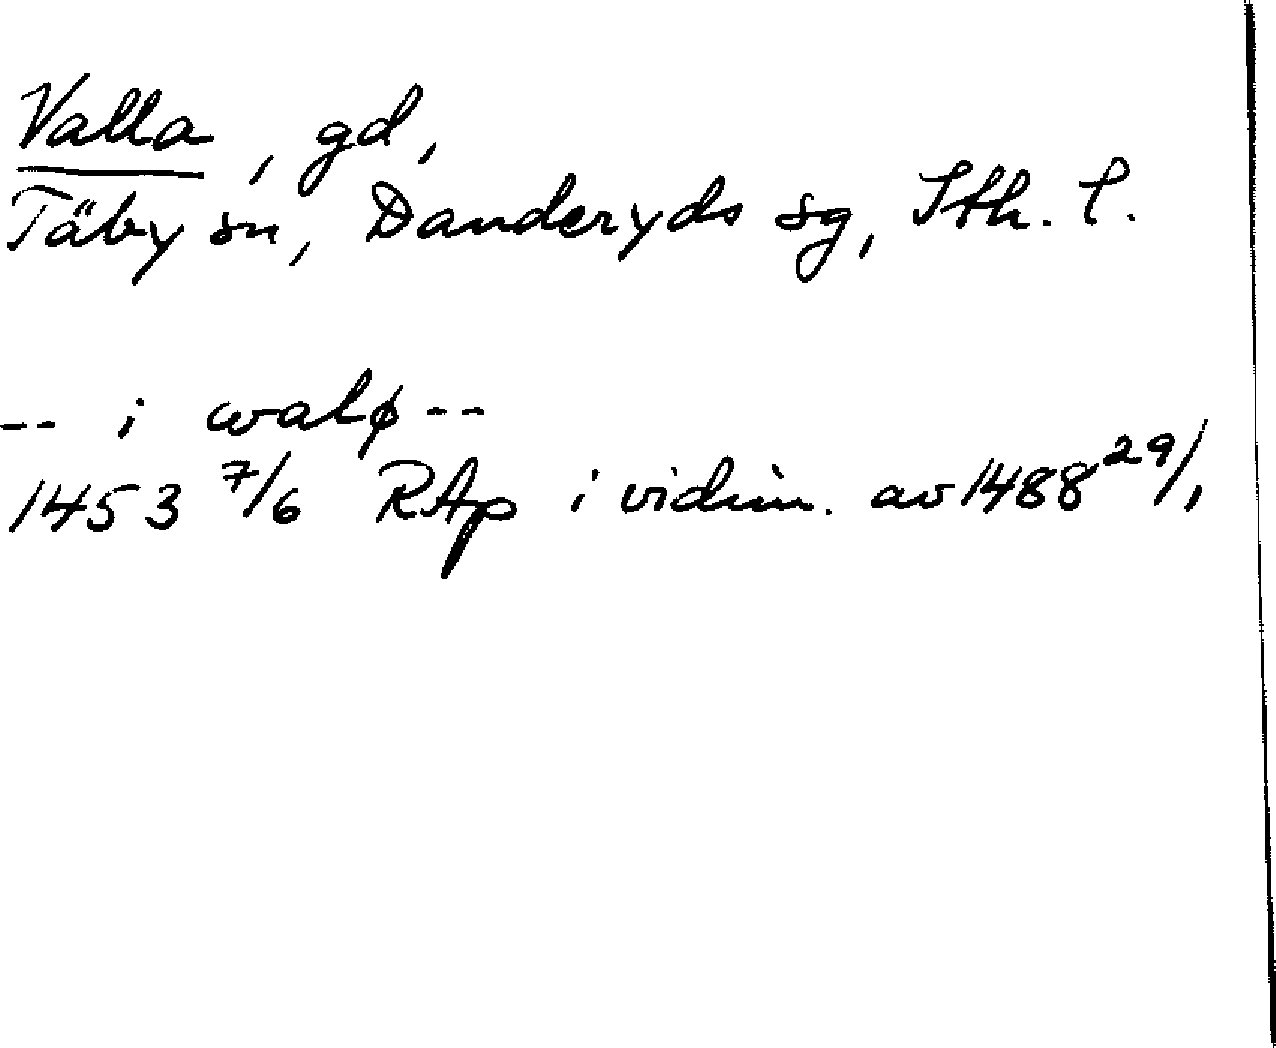 Valla, gd,
Täby sn, Danderyds sg, Sth. l.
-- i walø --
1453 7/6 RAp i vidim. av 1488 29/1